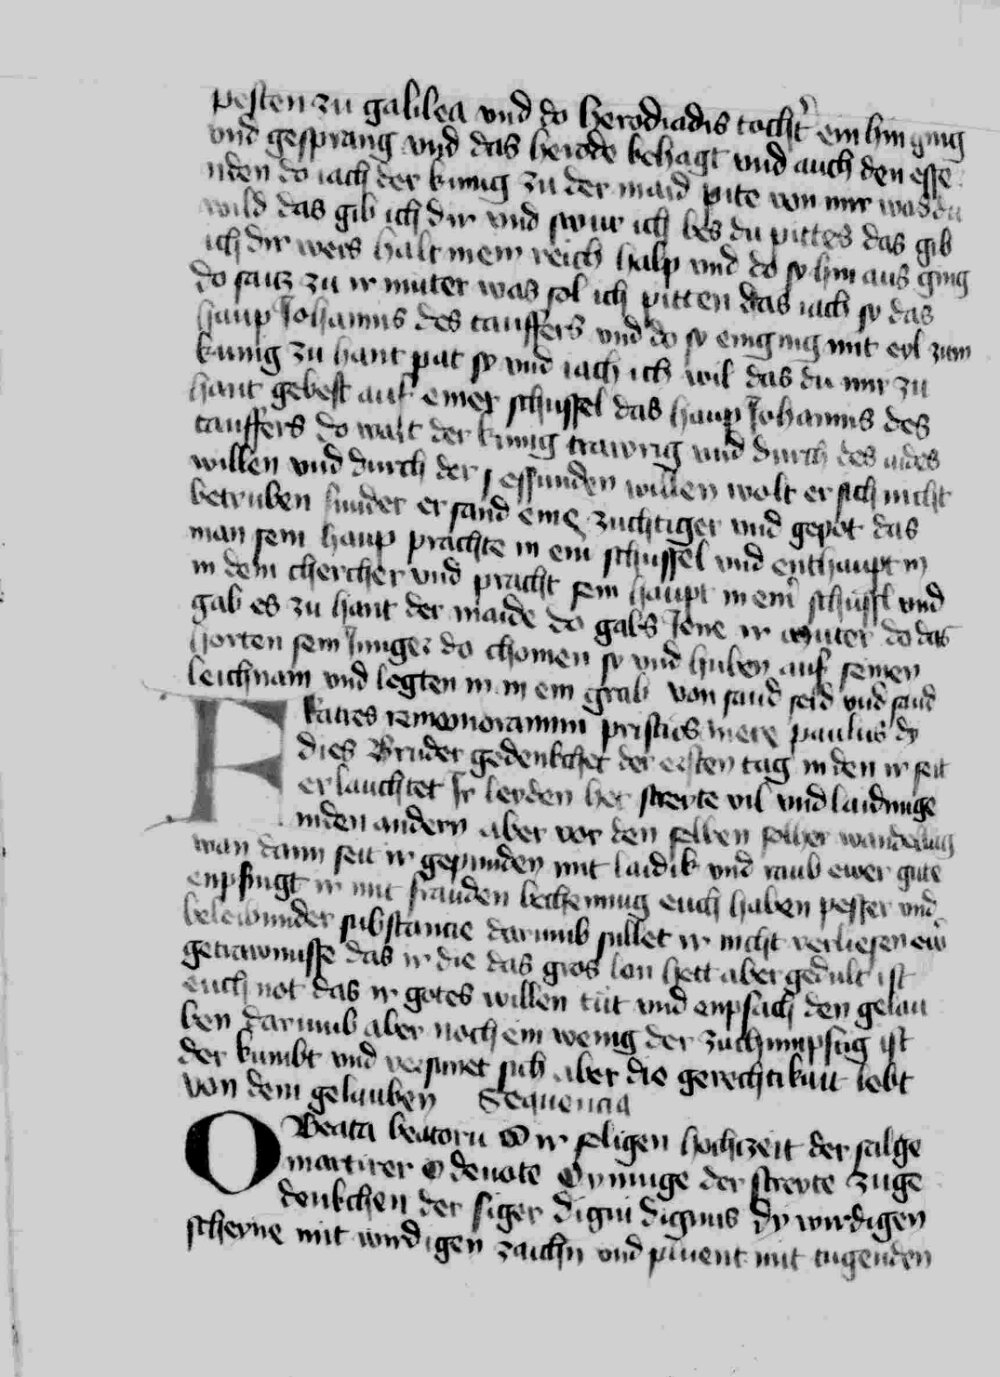 pesten zu galilea vnd do herodiadis tocht̓ ein hin ging
vnd gesprang vnd das herode behagt vnd auch den esse
nden do iach der kunig zu der maid pite von mir was du
wild das gib ich dir vnd swur ich bes du pittes das gib
ich dir wers halt mein reich halp vnd do sy hin aus ging
do saitz zu ir muter was sol ich pitten das iach sy das
haup Johannis des tauffers vnd do sy einging mit eyl zum
kunig zu hant pat sy vnd iach ich wil das du mir zu
hant gebest auf einer schussel das haup Johannis des
tauffers do wart der kunig trawrig vnd durch des aides
willen vnd durch der essunden willen wolt er sich nicht
betruben sunder er sand eine zuchtiger vnd gepot das
man sein haup prachte in ein schussel vnd enthaupt in
in dem chercher vnd pracht sein haupt in ein̓ schussl vnd
gab es zu hant der maide do gabs Jene ir muter do das
horten sein Junger do chomen sy vnd huben auf seinen
leichnam vnd legten in in ein grab von sand feld vnd sand
Fratres rememoramini pristinos mere paulus dy
dies Bruder gedenkchet der ersten tag in den ir seit
erlauchtet Ir leyden her streyte vil vnd laidnuge
in den andern aber vor den selben solher wandelung
wan dann seit ir gepunden mit laidik vnd raub ewer gute
enpfingt ir mit frauden bechennug euch haben pesser vnd
beleibunder substancie darumb sullet ir nicht verliesen ew̓
getrawnusse das ir die das gros lon hett aber gedult ist
euch not das ir gotes willen tut vnd enpfach den gelau
ben darumb aber noch ein wenig der zuchunpftig ist
der kumbt vnd versumet sich aber die gerechtikait lebt
von dem gelauben Sequencia
O Beata beatoru O ir seligen hochzeit der salge
martirer O deuote O ynnige der streyte zuge
denkchen der siger digni dignis dy wirdigen
scheyne mit wirdigen zaichn vnd pluent mit tugenden